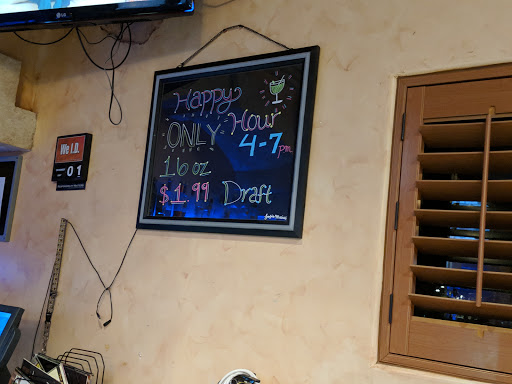 LG
Happy
Hour
ONLY 4-7pm
16 oz
$1.99 Draft
We I.D.
01